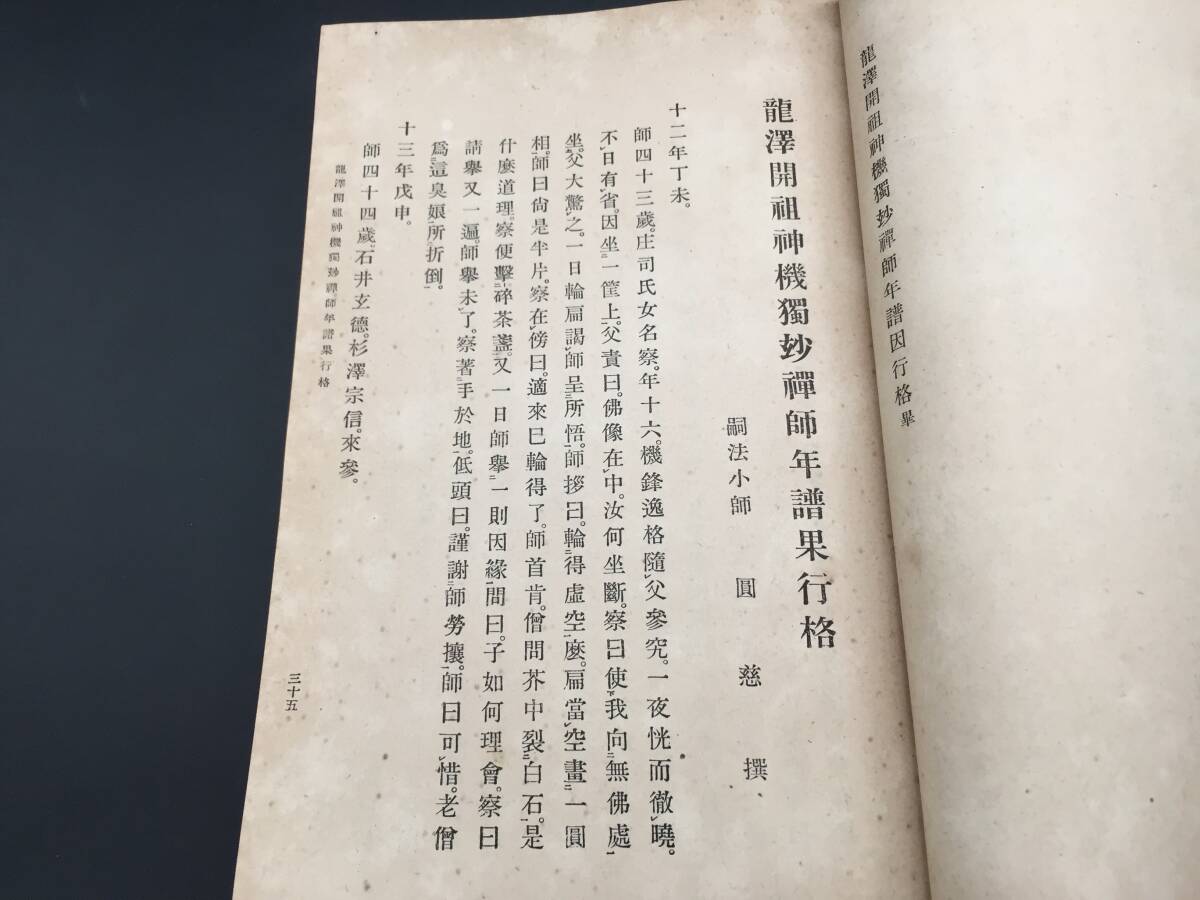 龍澤開祖神機獨玅禪師年譜因行格畢
龍澤開祖神機獨玅禪師年譜果行格
嗣法小師 圓慈 撰
十二年丁未。
師四十三歲。庄司氏女名察。年十六。機鋒逸格隨父參究。一夜恍而徹曉。
不日有省。因坐一筐上。父責曰。佛像在中。汝何坐斷。察曰使我向無佛處
坐。父大驚之。一日輪扁謁師呈所悟。師拶曰。輪得虛空麼。扁當空畫一圓
相。師曰尙是半片。察在傍曰。適來巳輪得了。師首肯。僧問芥中裂白石。是
什麼道理。察便擊碎茶盞。又一日師舉一則因緣問曰。子如何理會。察曰
請舉又一遍。師舉未了。察著手於地。低頭曰。謹謝師勞攘。師曰可惜。老僧
爲這臭娘所折倒。
十三年戊申。
師四十四歲。石井玄德。杉澤宗信。來參。
龍澤開祖神機獨玅禪師年譜果行格
三十五